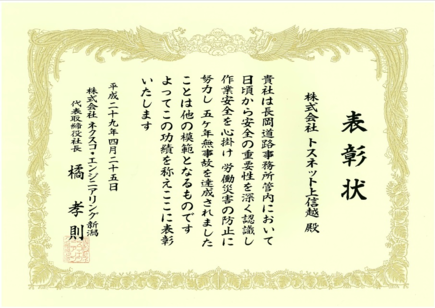 表彰状
株式会社 トスネット上信越 殿
貴社は長岡道路事務所管内において
日頃から安全の重要性を深く認識し
作業安全を心掛け 労働災害の防止に
努力し 五ケ年無事故を達成されました
ことは他の模範となるものです
よってこの功績を称えここに表彰
いたします
平成二十九年四月二十五日
株式会社 ネクスコ・エンジニアリング新潟
代表取締役社長 橘 孝則